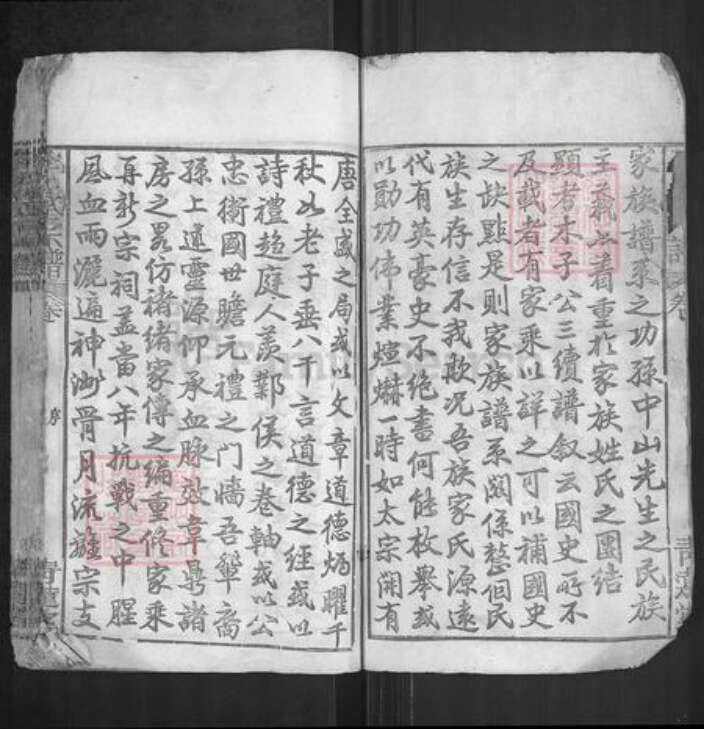 家族譜系之功孫中山先生之民族
主義亦着重於家族姓氏之團結
顯者木子公三續譜叙云國史所不
及載者有家乘以詳之可以補國史
之缺點是則家族譜系關係整個民
族生存信不我欺况吾族家氏源遠
代有英豪史不絕書何能枚舉或
以勛功偉業煊爀一時如太宗開有
唐全盛之局或以文章道德炳曜千
秋如老子垂八千言道德之經或以
詩禮趨庭人羨鄴侯之卷軸或以公
忠衛國世瞻元禮之門墻吾輩裔
孫上述靈源仰承血脉效韋鼎諸
房之畧仿褚緒家傳之編重修家乘
再新宗祠盖當八年抗戰之中腥
風血雨灑遍神洲骨月流離宗支
李氏宗譜 卷 序
青蓮